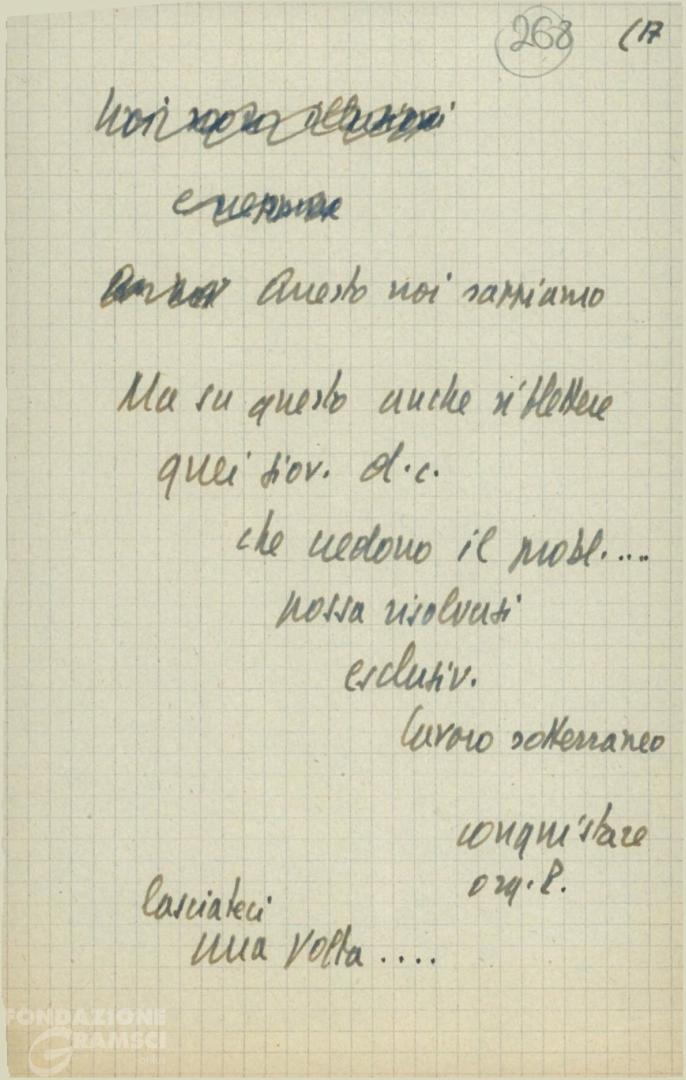 268 (17
Noi senza illusioni
e nemmeno
Questo noi sappiamo
Ma su questo anche riflettere
quei giov. d.c.
che vedono il probl. ....
possa risolversi
esclusiv.
lavoro sotterraneo
conquistare
org. P.
lasciateci
una volta ....
FONDAZIONE
GRAMSCI